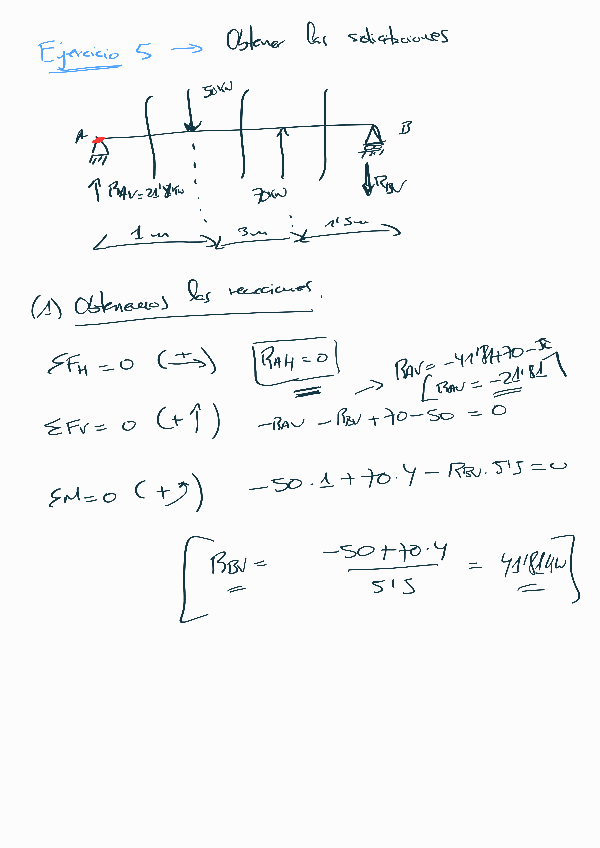 Ejercicio 5 → Obtener las solicitaciones
50 KN
A
B
↑ RAV = 21'81 KN
70 KN
RBV
1 m
3 m
1'5 m
(1) Obtenemos las reacciones.
ΣFH = 0 (+→) RAH = 0
→ RAV = -41'81+70-50
[RAV = -21'81]
ΣFV = 0 (+↑) -RAV - RBV + 70 - 50 = 0
ΣM = 0 (+↺) -50·1 + 70·4 - RBV·5'5 = 0
[RBV = (-50+70·4)/5'5 = 41'81 KN]